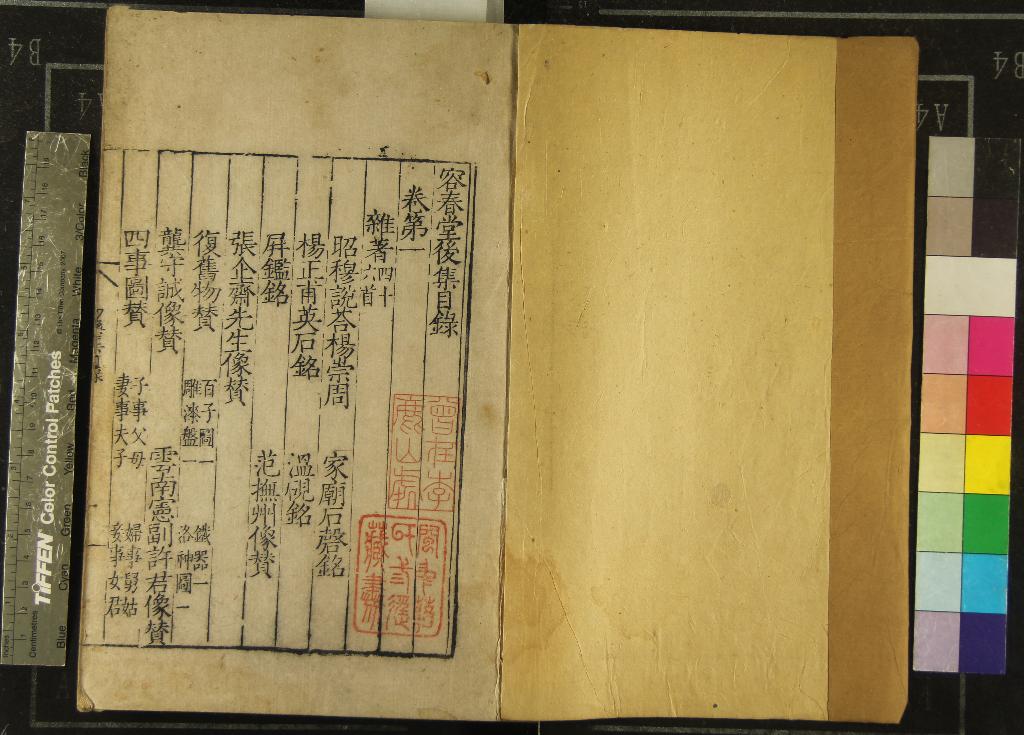 容春堂後集目錄
卷第一
雜著四十六首
昭穆說荅楊崇周
家廟石磬銘
楊正甫英石銘
溫硯銘
屏鑑銘
范撫州像贊
張企齋先生像贊
復舊物贊
百子圖一
雕漆盤一
鐵器一
洛神圖一
龔守誠像贊
雲南憲副許君像贊
四事圖贊
子事父母
妻事夫子
婦事舅姑
妾事女君
TIFFEN Color Control Patches
Inches
Centimetres
Blue
Cyan
Green
Yellow
Red
Magenta
White
3/Color
Black
B4
A4
A4
B4